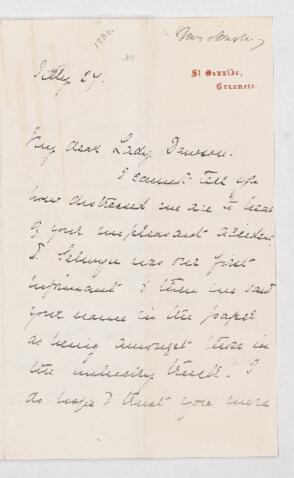 1886
St Oswalds,
Grasmere.
July 27.
My dear Lady Dawson.
I cannot tell you
how distressed we are to hear
of your unpleasant accident
D. Selwyn was our first
informant & then we saw
your name in the paper
as being amongst those in
the unlucky train! I
do hope & trust you were